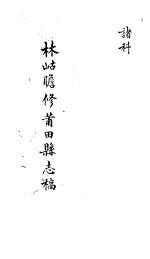 諸科
林岵瞻修莆田縣志稿